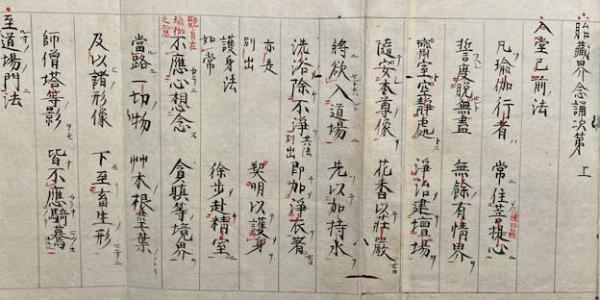 胎藏界念誦次第 上
入堂已前法
凡瑜伽行者 常住菩提心
誓度脱無盡 無餘有情界
齋室空靜處 淨治建壇場
隨安本尊像 花香以莊嚴
將欲入道場 先以加持水
洗浴除不淨 即加淨衣著
亦是別出 契明以護身
護身法如常 徐步赴精室
觀自在瑜伽之意
不應心想念 貪瞋等境界
當路一切物 艸木根莖葉
及以諸形像 下至畜生形
師僧塔等影 皆不應騎驀
至道場門法